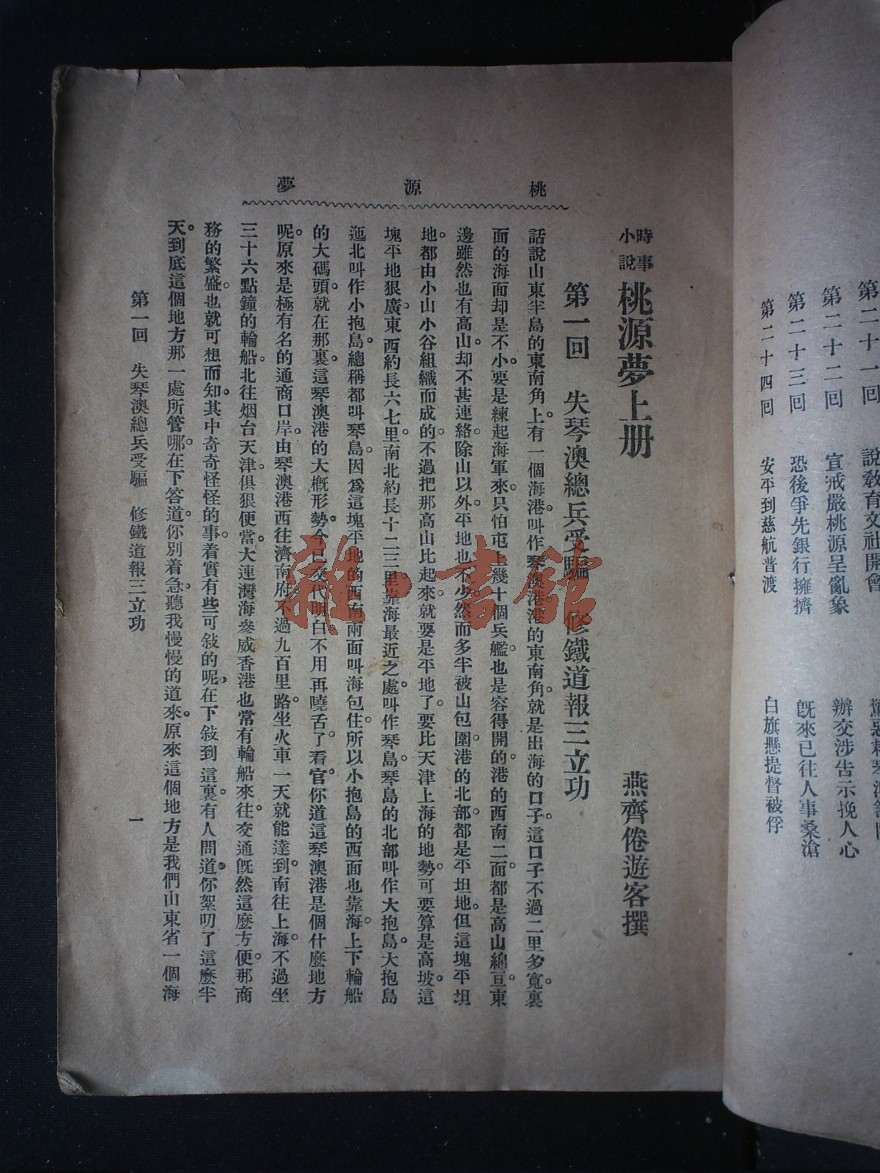 第二十一回　說敎育文社開會
第二十二回　宣戒嚴桃源呈亂象　辦交涉告示挽人心
第二十三回　恐後爭先銀行擁擠　旣來已往人事桑滄
第二十四回　安平到慈航普渡　白旗懸提督被俘
桃源夢
時事小說　桃源夢上册
燕齊倦遊客撰
第一回　失琴澳總兵受騙　修鐵道報三立功
話說山東半島的東南角上。有一個海港。叫作琴澳港。港的東南角。就是出海的口子。這口子不過二里多寬。裏
面的海面却是不小。要是練起海軍來。只怕屯上幾十個兵艦。也是容得開的。港的西南二面。都是高山綿亘。東
邊雖然也有高山。却不甚連絡。除山以外。平地也不少。然而多半被山包圍。港的北部。都是平坦地。但這塊平坦
地。都由小山小谷組織而成的。不過把那高山比起來。就要是平地了。要比天津上海的地勢。可要算是高坡。這
塊平地狠廣。東西約長六七里。南北約長十二三里。靠海最近之處。叫作琴島。琴島的北部。叫作大抱島。大抱島
迤北。叫作小抱島。總稱都叫琴島。因爲這塊平地的西南兩面叫海包住。所以小抱島的西面也靠海。上下輪船
的大碼頭。就在那裏。這琴澳港的大槪形勢。今已交代明白。不用再曉舌了。看官你道這琴澳港是個什麼地方
呢。原來是極有名的通商口岸。由琴澳港西往濟南府。不過九百里路。坐火車一天就能達到。南往上海。不過坐
三十六點鐘的輪船。北往烟台天津。俱狠便當。大連灣海參威香港也常有輪船來往。交通旣然這麼方便。那商
務的繁盛。也就可想而知。其中奇奇怪怪的事。着實有些可敍的呢。在下敍到這裏。有人問道。你絮叨了這麼半
天。到底這個地方那一處所管哪。在下答道。你別着急。聽我慢慢的道來。原來這個地方。是我們山東省一個海
第一回　失琴澳總兵受騙　修鐵道報三立功
一
雜·書館